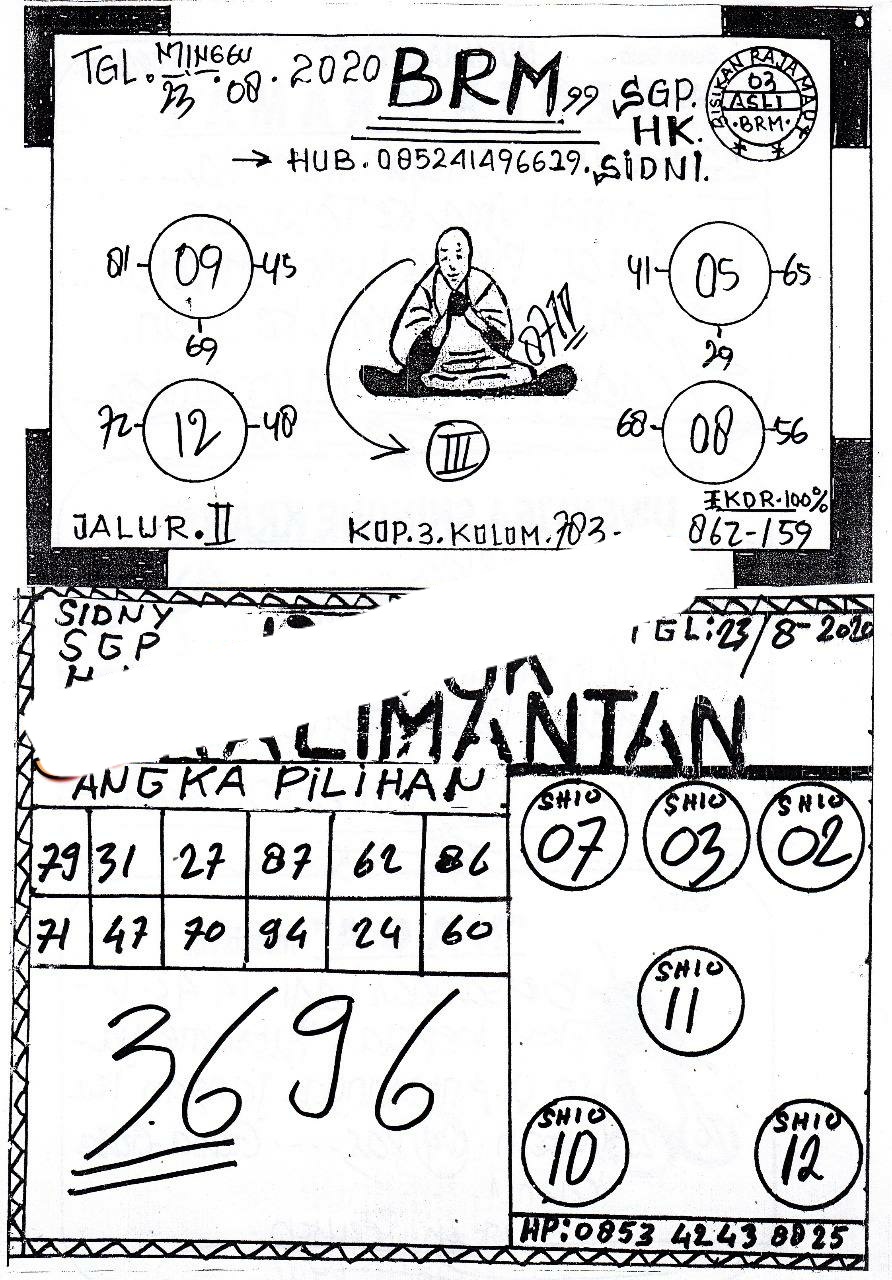 TGL. MINGGU
23.08.2020
BRM 99
SGP.
HK.
SIDNI.
BISIKAN RAJA MAUT
03
ASLI
BRM
→ HUB. 085241496619.
01 09 45
69
41 05 65
29
72 12 48
68 08 56
87
III
JALUR. II
KOP. 3. KOLOM. 783-
KDR. 100%
862-159
SIDNY
SGP
TGL: 23/8-2020
KALIMANTAN
ANGKA PILIHAN
79 31 27 87 62 86
71 47 70 94 24 60
3696
SHIO 07
SHIO 03
SHIO 02
SHIO 11
SHIO 10
SHIO 12
HP: 0853 4243 8825